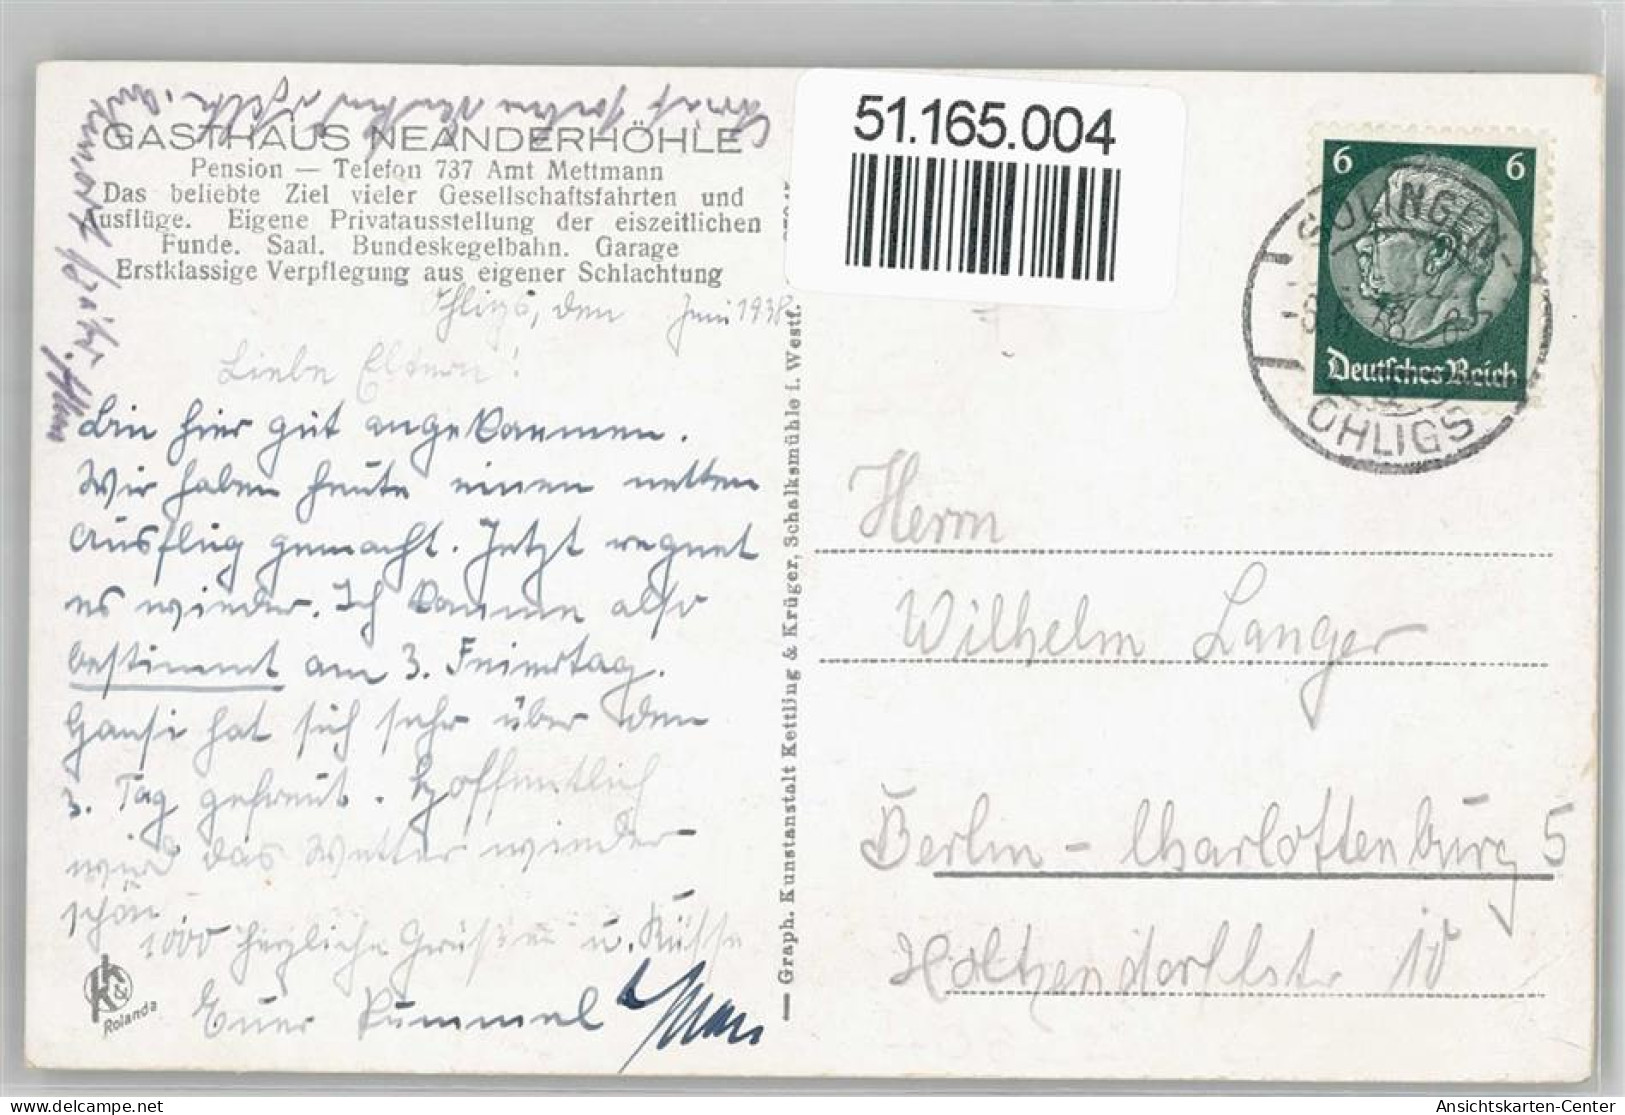 GASTHAUS NEANDERHÖHLE
Pension — Telefon 737 Amt Mettmann
Das beliebte Ziel vieler Gesellschaftsfahrten und
Ausflüge. Eigene Privatausstellung der eiszeitlichen
Funde. Saal. Bundeskegelbahn. Garage
Erstklassige Verpflegung aus eigener Schlachtung
Ohligs, den Juni 1938
Liebe Eltern!
Bin hier gut angekommen.
Wir haben heute einen netten
Ausflug gemacht. Jetzt regnet
es wieder. Ich komme also
bestimmt am 3. Feiertag.
Hansi hat sich sehr über den
3. Tag gefreut. Hoffentlich
wird das Wetter wieder
schön
1000 herzliche Grüße u. Küsse
Euer Pummel
k & k
Rolanda
Graph. Kunstanstalt Kettling & Krüger, Schalksmühle i. Westf.
51.165.004
6 6
Deutsches Reich
SOLINGEN-
OHLIGS
Herrn
Wilhelm Langer
Berlin - Charlottenburg 5
Holtzendorffstr 10
Ansichtskarten-Center